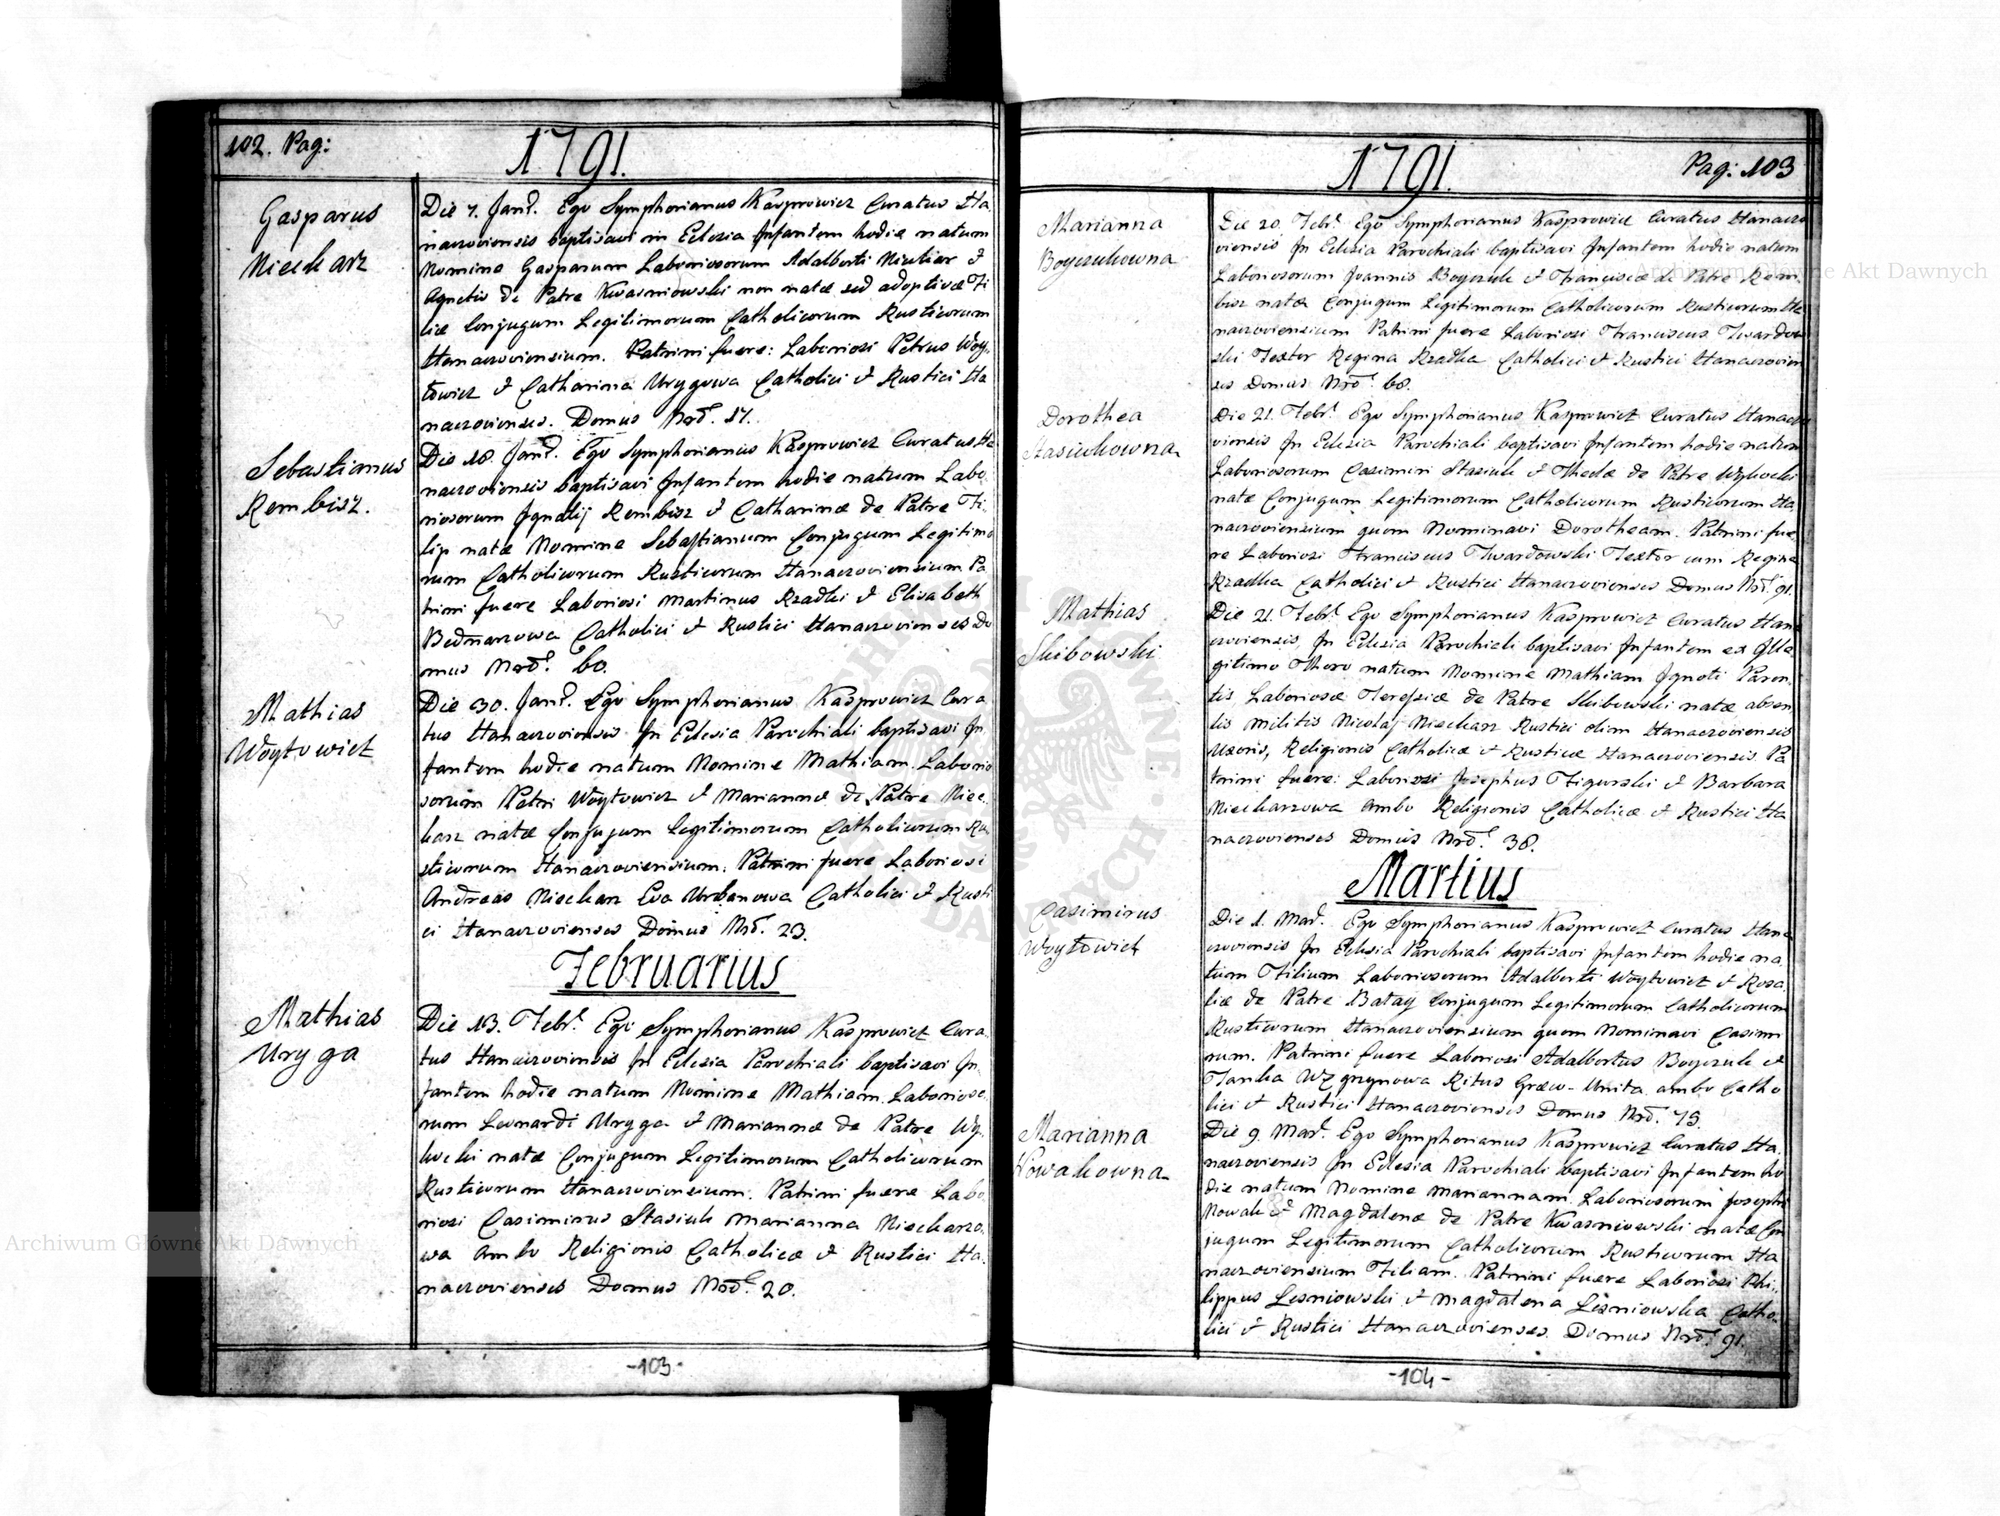 102. Pag:
1791.
Gasparus
Mieckarz
Die 7. Janr. Ego Symphorianus Kasprowicz Curatus Ha
naczoviensis baptisavi in Eclesia Infantem hodie natum
Nomine Gasparum Laboriosorum Adalberti &
Agnetis de Patre Kwasniowski non natæ sed adoptivæ Fi
liæ Conjugum Legitimorum Catholicorum Rusticorum
Hanaczoviensium. Patrini fuere: Laboriosi Petrus Woy,
towicz & Catharina Urygowa Catholici & Rustici Ha
naczovienses. Domus Nrō. 57.
Sebastianus
Rembisz.
Die 18. Janr. Ego Symphorianus Kasprowicz Curatus Ha
naczoviensis baptisavi Infantem hodie natum Labo,
riosorum Ignatij Rembisz & Catharinæ de Patre Fi,
lip natæ Nomine Sebastianum Conjugum Legitimo
rum Catholicorum Rusticorum Hanaczoviensium Pa
trini fuere Laboriosi Martinus Rzadki & Elisabeth
Bednarzowa Catholici & Rustici Hanaczovienses Do
mus Nrō. 60.
Mathias
Woytowicz
Die 30. Janr. Ego Symphorianus Kasprowicz Cura
tus Hanaczoviensis In Eclesia Parochiali baptisavi In
fantem hodie natum Nomine Mathiam Laborio
sorum Petri Woytowicz & Mariannæ de Patre Miec
karz natæ Conjugum Legitimorum Catholicorum Ru
sticorum Hanaczoviensium. Patrini fuere Laboriosi
Andreas Mieckarz Eva Urbanowa Catholici & Rusti
ci Hanaczovienses Domus Nrō. 23.
Februarius
Mathias
Uryga
Die 13. Febr. Ego Symphorianus Kasprowicz Cura,
tus Hanaczoviensis In Eclesia Parochiali baptisavi In,
fantem hodie natum Nomine Mathiam Lavorioso,
rum Leonardi Uryga & Mariannæ de Patre Wy,
kocki natæ Conjugum Legitimorum Catholicorum
Rusticorum Hanaczoviensium. Patrini fuere Labo
riosi Casimirus Stasiuk Marianna Mieckarzo,
wa Ambo Religionis Catholicæ & Rustici Ha,
naczovienses Domus Nrō. 20.
-103-
1791.
Pag: 103
Marianna
Boyczukowna
Die 20. Febr. Ego Symphorianus Kasprowicz Curatus Hanaczo
viensis In Eclesia Parochiali baptisavi Infantem hodie natum
Laboriosorum Joannis Boyczuk & Franciscæ de Patre Rem,
bisz natæ Conjugum Legitimorum Catholicorum Rusticorum Ha
naczoviensium Patrini fuere Laboriosi Franciscus Twardow
ski Textor Regina Rzadka Catholici & Rustici Hanaczovien
ses Domus Nrō. 68.
Dorothea
Stasiukowna
Die 21. Febr. Ego Symphorianus Kasprowicz Curatus Hanaczo
viensis In Eclesia Parochiali baptisavi Infantem hodie natum
Laboriosorum Casimiri Stasiuk & Theclæ de Patre Wykocki
natæ Conjugum Legitimorum Catholicorum Rusticorum Ha
naczoviensium quem Nominavi Dorotheam. Patrini fue,
re Laboriosi Franciscus Twardowski Textor cum Regina
Rzadka Catholici & Rustici Hanaczovienses Domus Nrō. 91.
Mathias
Skibowski
Die 21. Febr. Ego Symphorianus Kasprowicz Curatus Hana
czoviensis, In Eclesia Parochiali baptisavi Infantem ex Ille
gitimo Thoro natum Nomine Mathiam Ignoti Paren,
tis, Laboriosæ Teresiæ de Patre Skibowski natæ absen
tis Militis Nicolaj Mieckarz Rustici olim Hanaczoviensis
Uxoris, Religionis Catholicæ & Rusticæ Hanaczoviensis. Pa
trini fuere: Laboriosi Josephus Figurski & Barbara
Mieckarzowa Ambo Religionis Catholicæ & Rustici Ha
naczovienses Domus Nrō. 38.
Martius
Casimirus
Woytowicz
Die 1. Mar. Ego Symphorianus Kasprowicz Curatus Hana
czoviensis In Eclesia Parochiali baptisavi Infantem hodie na,
tum Filium Laboriosorum Adalberti Woytowicz & Rosa,
liæ de Patre Batay Conjugum Legitimorum Catholicorum
Rusticorum Hanaczoviensium quem Nominavi Casimi
rum. Patrini fuere Laboriosi Adalbertus Boyczuk &
Ritus Græco-Unita ambo Catho
lici & Rustici Hanaczovienses Domus Nrō. 75.
Marianna
Nowakowna
Die 9. Mar. Ego Symphorianus Kasprowicz Curatus Ha,
naczoviensis In Eclesia Parochiali baptisavi Infantem ho
die natum Nomine Mariannam Laboriosorum Josephi
Nowak & Magdalenæ de Patre Kwasniowski natæ Con
jugum Legitimorum Catholicorum Rusticorum Ha
naczoviensium Filiam. Patrini fuere Laboriosi Phi,
lippus Lesniowski & Magdalena Lesniowska Catho,
lici & Rustici Hanaczovienses Domus Nrō. 91.
-104-
Archiwum Główne Akt Dawnych
Archiwum Główne Akt Dawnych